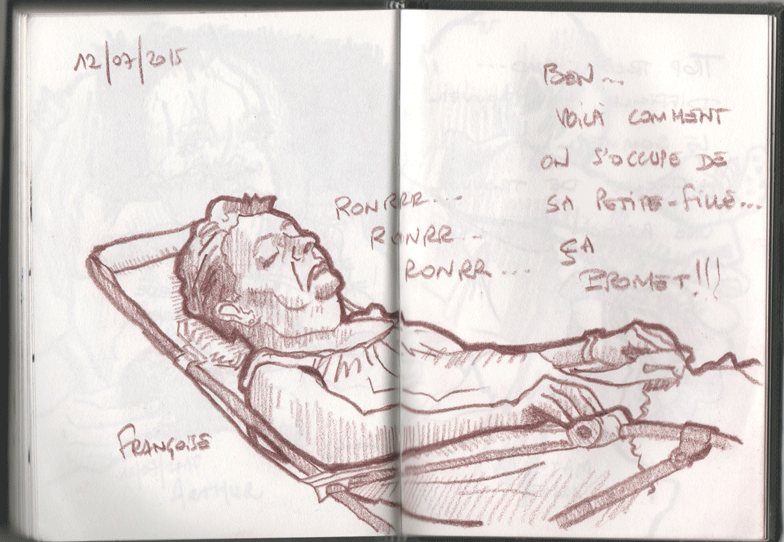 12/07/2015
BON...
VOILÀ COMMENT
ON S'OCCUPE DE
SA PETITE-FILLE...
ÇA
PROMET!!!
RONRRR...
RONRR...
RONRR...
FRANÇOISE